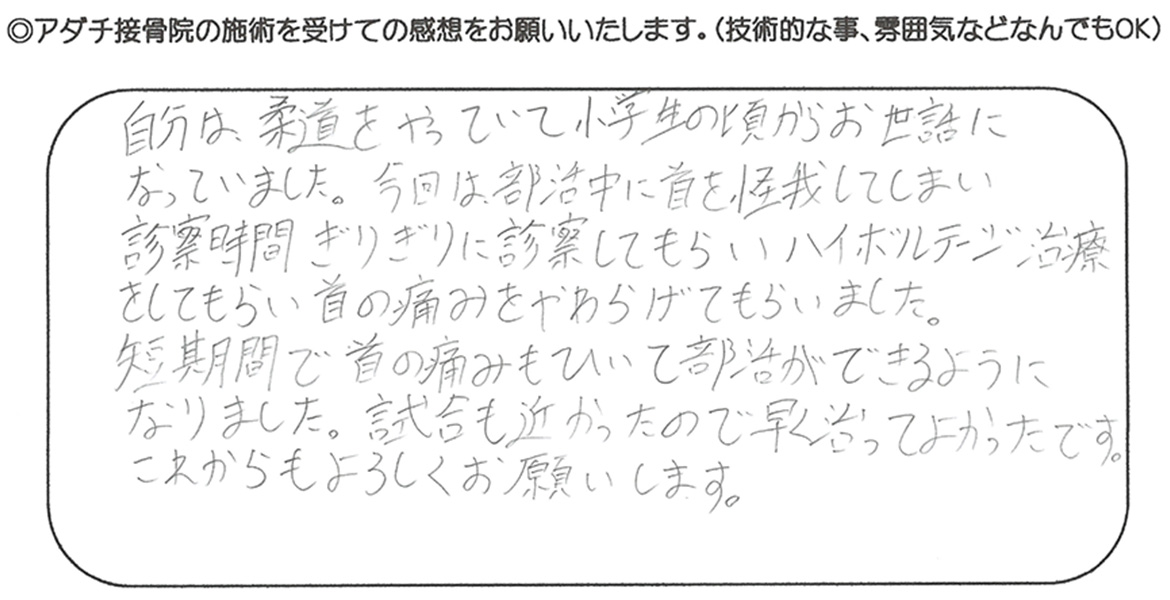 ◎アダチ接骨院の施術を受けての感想をお願いいたします。（技術的な事、雰囲気などなんでもOK）
自分は、柔道をやっていて小学生の頃からお世話に
なっていました。今回は、部活中に首を、怪我してしまい
診察時間ぎりぎりに診察してもらいハイボルテージ治療
をしてもらい首の痛みをやわらげてもらいました。
短期間で首の痛みもひいて部活ができるように
なりました。試合も近かったので早く治ってよかったです。
これからもよろしくお願いします。